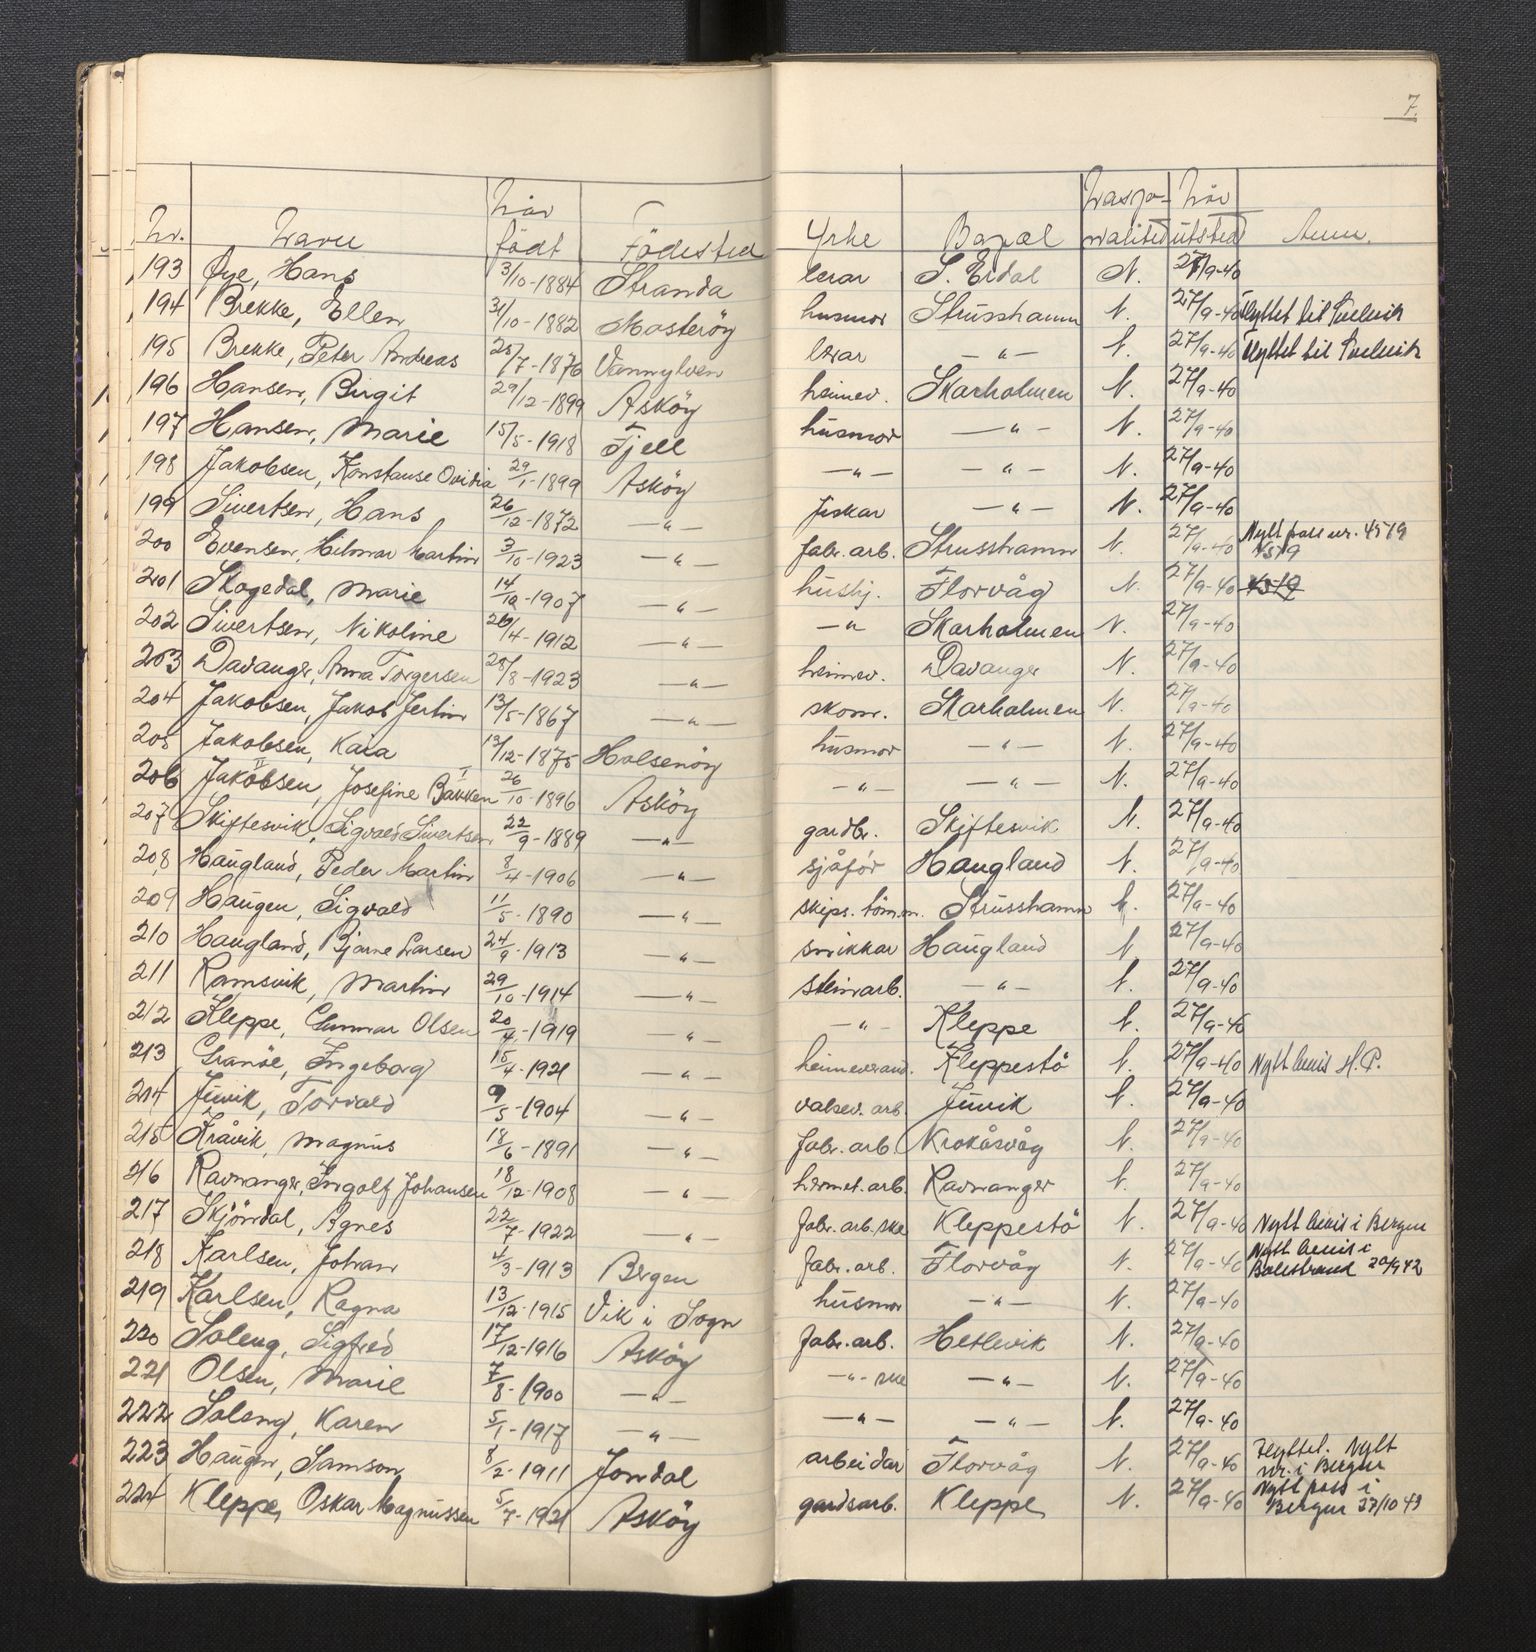 7.
Nr. Navn Når födt Födested Yrke Bopæl Nasjonalitet Når utsted Anm.
193 Øye, Hans 3/10-1884 Stranda lærar S. Erdal N. 27/9-40
194 Brekke, Ellen 31/10-1882 Masteröy husmor Strusshamn N. 27/9-40 Flyttet til
195 Brekke, Peter Andreas 25/7-1876 Vannylven lærar —"— N. 27/9-40 Flyttet til
196 Hansen, Birgit 29/12-1899 Asköy heimev. Skarholmen N. 27/9-40
197 Hansen, Marie 15/5-1918 Fjell husmor —"— N. 27/9-40
198 Jakobsen, Konstanse Ovidia 29/1-1899 Asköy —"— —"— N. 27/9-40
199 Sivertsen, Hans 26/12-1872 —"— fiskar —"— N. 27/9-40
200 Evensen, Hilmar Martin 3/10-1923 —"— fabr. arb. Strusshamn N. 27/9-40 Nytt pass nr. 4579
201 Skogedal, Marie 14/12-1907 —"— hushj. Florvåg N. 27/9-40
202 Sivertsen, Nikoline 26/4-1912 —"— —"— Skarholmen N. 27/9-40
203 Davanger, Anna Torgersen 28/8-1923 —"— heimev. Davanger N. 27/9-40
204 Jakobsen, Jakob Jertin 13/5-1867 —"— skom. Skarholmen N. 27/9-40
205 Jakobsen, Kaia 13/12-1875 Holsenöy husmor —"— N. 27/9-40
206 Jakobsen, II Josefine Bakken I 26/10-1896 Asköy —"— —"— N. 27/9-40
207 Skiftesvik, Sigvald Sivertsen 22/9-1889 —"— gardbr. Skiftesvik N. 27/9-40
208 Haugland, Peder Martin 8/4-1906 —"— sjåför Haugland N. 27/9-40
209 Haugen, Sigvald 11/5-1890 —"— skips. tömm. Strusshamn N. 27/9-40
210 Haugland, Bjarne Larsen 24/9-1913 —"— snikkar Haugland N. 27/9-40
211 Ramsvik, Martin 29/10-1914 —"— steinarb. —"— N. 27/9-40
212 Kleppe, Gunnar Olsen 20/4-1919 —"— —"— Kleppe N. 27/9-40
213 Granöe, Ingeborg 15/4-1921 —"— heimeverand. Kleppestö N. 27/9-40 Nytt bevis H.P.
214 Juvik, Torvald 9/5-1904 —"— valsev. arb. Juvik N. 27/9-40
215 Kråvik, Magnus 18/6-1891 —"— fabr. arb. Krokåsvåg N. 27/9-40
216 Ravnanger, Ingolf Johansen 18/12-1908 —"— hermet. arb. Ravnanger N. 27/9-40
217 Skjöndal, Agnes 22/7-1922 —"— fabr. arb. ske Kleppestö N. 27/9-40 Nytt bevis i Bergen
218 Karlsen, Johan 4/3-1913 Bergen fabr. arb. Florvåg N. 27/9-40 Nytt bevis i
Balestrand 20/9 42
219 Karlsen, Ragna 13/12-1915 Vik i Sogn husmor —"— N. 27/9-40
220 Soleng, Sigfred 17/12-1916 Asköy fabr. arb. Hetlevik N. 27/9-40
221 Olsen, Marie 7/8-1900 —"— —"— ske —"— N. 27/9-40
222 Soleng, Karen 5/1-1917 —"— —"— —"— N. 27/9-40
223 Haugen, Samson 8/2-1911 Jondal arbeidar Florvåg N. 27/9-40 Flyttet. Nytt
nr. i Bergen
224 Kleppe, Oskar Magnussen 5/7-1921 Asköy gardsarb. Kleppe N. 27/9-40 Nytt pass i
Bergen 27/10 43